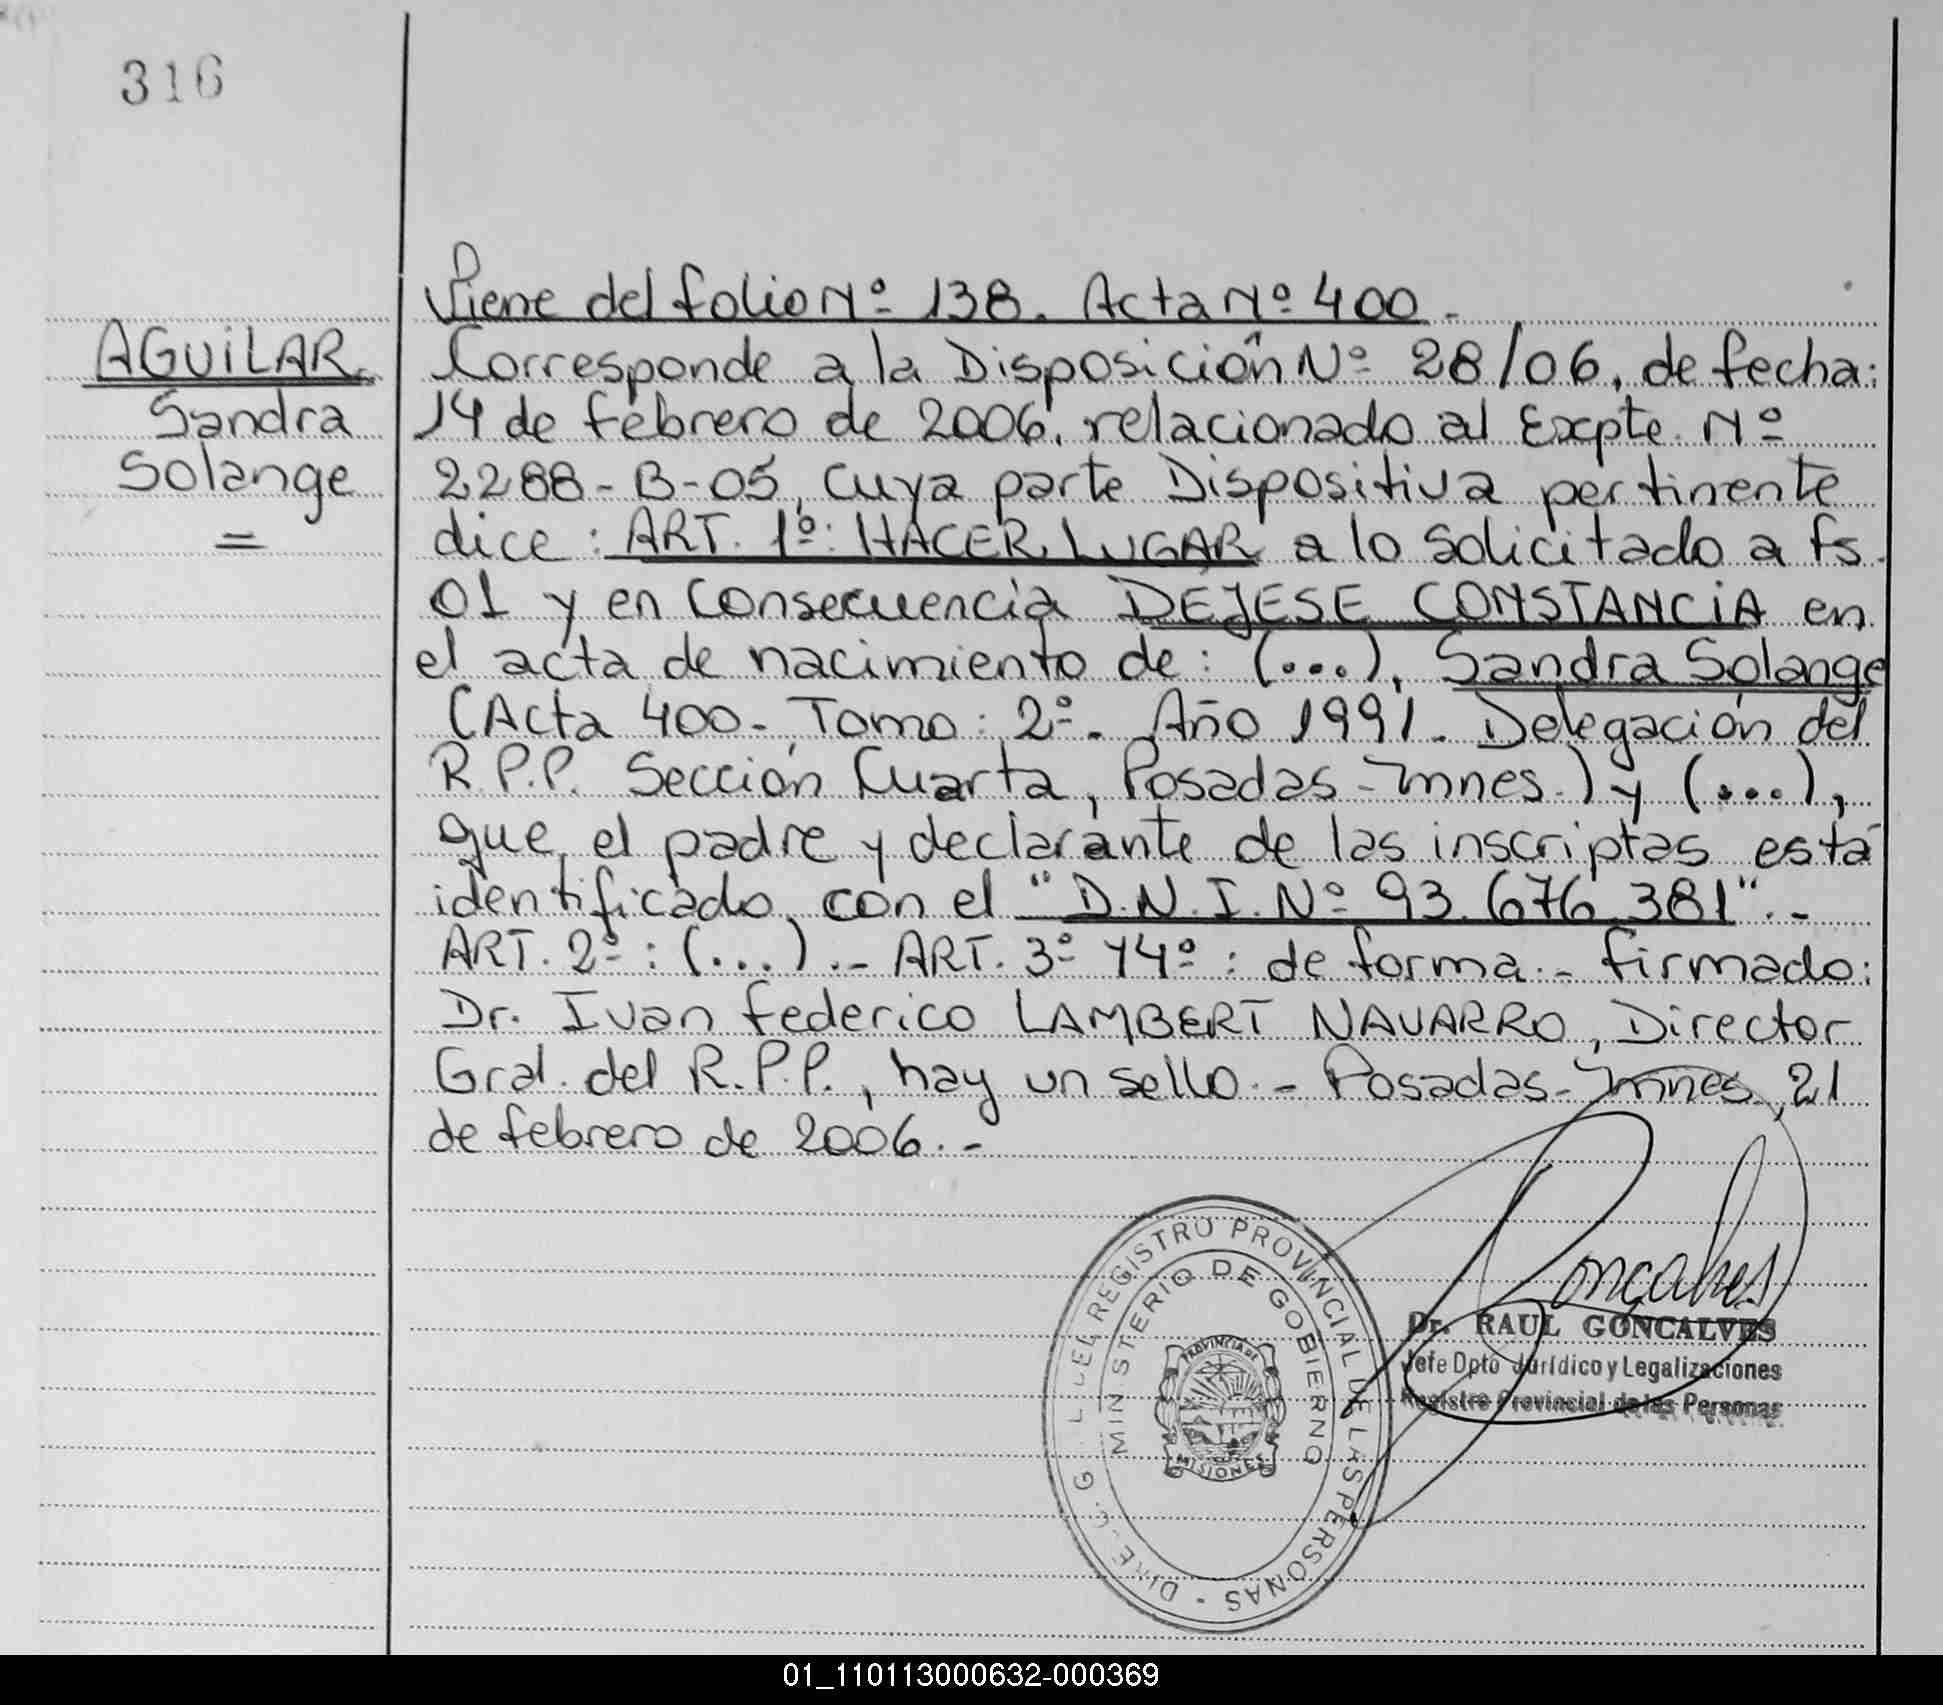 316
AGUILAR
Sandra
Solange
=
Viene del folio Nº 138. Acta Nº 400.-
Corresponde a la Disposición Nº 28/06, de fecha:
14 de febrero de 2006, relacionado al Expte. Nº
2288-B-05, cuya parte Dispositiva pertinente
dice: ART. 1º: HACER LUGAR a lo solicitado a fs.
01 y en consecuencia DEJESE CONSTANCIA en
el acta de nacimiento de: (...), Sandra Solange
(Acta 400-, Tomo: 2º-. Año 1991. Delegación del
R.P.P. Sección Cuarta, Posadas-Mnes.) y (...),
que, el padre y declarante de las inscriptas está
identificado, con el "D.N.I. Nº 93.676.381".-
ART. 2º: (...).- ART. 3º Y 4º: de forma.- firmado:
Dr. Ivan Federico LAMBERT NAVARRO, Director
Gral. del R.P.P., hay un sello.- Posadas-Mnes, 21
de febrero de 2006.-
DEL REGISTRO PROVINCIAL DE LAS PERSONAS -
MINISTERIO DE GOBIERNO
PROVINCIA DE
MISIONES
Goncalves
Dr. RAUL GONCALVES
Jefe Dpto Jurídico y Legalizaciones
Registro Provincial de las Personas
01_110113000632-000369